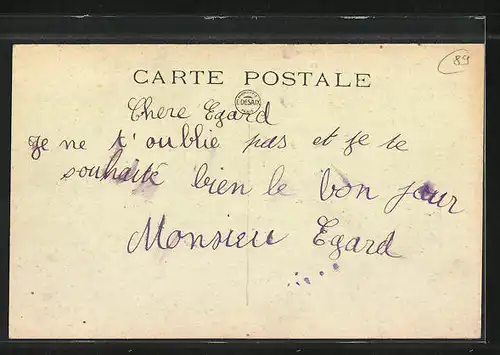 89
CARTE POSTALE
EDESAIX
Chere Egard
Je ne t'oublie pas et je te
souhaité bien le bon jour
Monsieu Egard